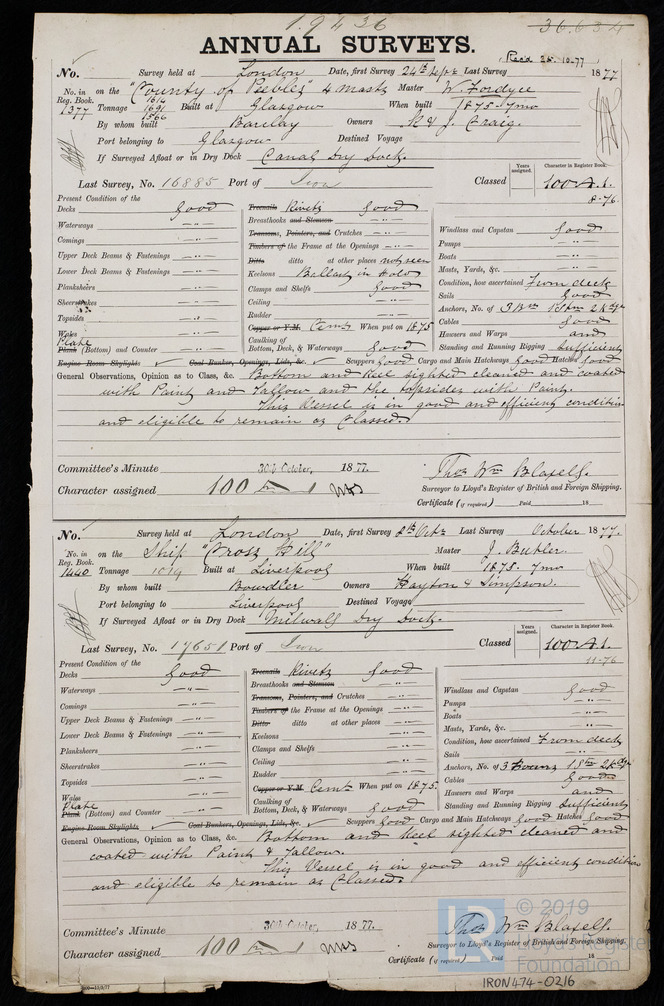 19436
36.634
ANNUAL SURVEYS.
Rec'd 25.10.77
No. Survey held at London Date, first Survey 24th Sept Last Survey 1877
No. in Reg. Book. 1377 on the "County of Peebles" 4 masts Master W. Fordyce
Tonnage 1614 1691 1566 Built at Glasgow When built 1875 7mo
By whom built Barclay Owners R & J. Craig.
Port belonging to Glasgow Destined Voyage
If Surveyed Afloat or in Dry Dock Canal Dry Dock.
Last Survey, No. 16885 Port of Iron Classed Years assigned. Character in Register Book. 100 A.1. 8-76
Present Condition of the
Decks good
Waterways — " —
Comings — " —
Upper Deck Beams & Fastenings — " —
Lower Deck Beams & Fastenings — " —
Planksheers — " —
Sheerstrakes — " —
Topsides — " —
Wales — " —
Plate Plank (Bottom) and Counter — " —
Treenails Rivets good
Breasthooks and Stemson — " —
Transoms, Pointers, and Crutches — " —
Timbers of the Frame at the Openings — " —
Ditto ditto at other places not seen
Keelsons Ballast in Hold
Clamps and Shelfs good
Ceiling — " —
Rudder — " —
Copper or Y.M. Cemt When put on 1875
Caulking of Bottom, Deck, & Waterways good
Windlass and Capstan good
Pumps — " —
Boats — " —
Masts, Yards, &c. — " —
Condition, how ascertained From deck
Sails good
Anchors, No. of 3 Brs 1 Stm 2 Kedge
Cables good
Hawsers and Warps and
Standing and Running Rigging sufficient
Engine Room Skylights Coal Bunker, Openings, Lids, &c. Scuppers good Cargo and Main Hatchways good Hatches good
General Observations, Opinion as to Class, &c. Bottom and keel sighted cleaned and coated
with Paint and Tallow and the topsides with Paint.
This Vessel is in good and efficient condition
and eligible to remain as Classed.
Committee's Minute 30th October, 1877.
Character assigned 100 A 1
Thos Wm Blaxell.
Surveyor to Lloyd's Register of British and Foreign Shipping.
Certificate (if required) Paid 18
No. Survey held at London Date, first Survey 2nd Oct Last Survey October 1877.
No. in Reg. Book. 1440 on the Ship "Cross Hill" Master J. Butler.
Tonnage 1014 Built at Liverpool When built 1875. 7mo
By whom built Bowdler Owners Hayton & Simpson.
Port belonging to Liverpool Destined Voyage
If Surveyed Afloat or in Dry Dock Milwall Dry Dock.
Last Survey, No. 17651 Port of Iron Classed Years assigned. Character in Register Book. 100 A.1. 11-76
Present Condition of the
Decks good
Waterways — " —
Comings — " —
Upper Deck Beams & Fastenings — " —
Lower Deck Beams & Fastenings — " —
Planksheers — " —
Sheerstrakes — " —
Topsides — " —
Wales — " —
Plate Plank (Bottom) and Counter — " —
Treenails Rivets good
Breasthooks and Stemson — " —
Transoms, Pointers, and Crutches — " —
Timbers of the Frame at the Openings — " —
Ditto ditto at other places — " —
Keelsons — " —
Clamps and Shelfs — " —
Ceiling — " —
Rudder — " —
Copper or Y.M. Cemt When put on 1875.
Caulking of Bottom, Deck, & Waterways good
Windlass and Capstan good
Pumps — " —
Boats — " —
Masts, Yards, &c. — " —
Condition, how ascertained From deck
Sails — " —
Anchors, No. of 3 Bowers 1 Stm 2 Kedge
Cables good
Hawsers and Warps and
Standing and Running Rigging sufficient
Engine Room Skylights Coal Bunkers, Openings, Lids, &c. Scuppers good Cargo and Main Hatchways good Hatches good
General Observations, Opinion as to Class, &c. Bottom and keel sighted cleaned and
coated with Paint & Tallow.
This Vessel is in good and efficient condition
and eligible to remain as Classed.
Committee's Minute 30th October, 1877.
Character assigned 100 A 1
Thos Wm Blaxell.
Surveyor to Lloyd's Register of British and Foreign Shipping.
Certificate (if required) Paid 18
© 2019
LR
Foundation
IRON474-0216